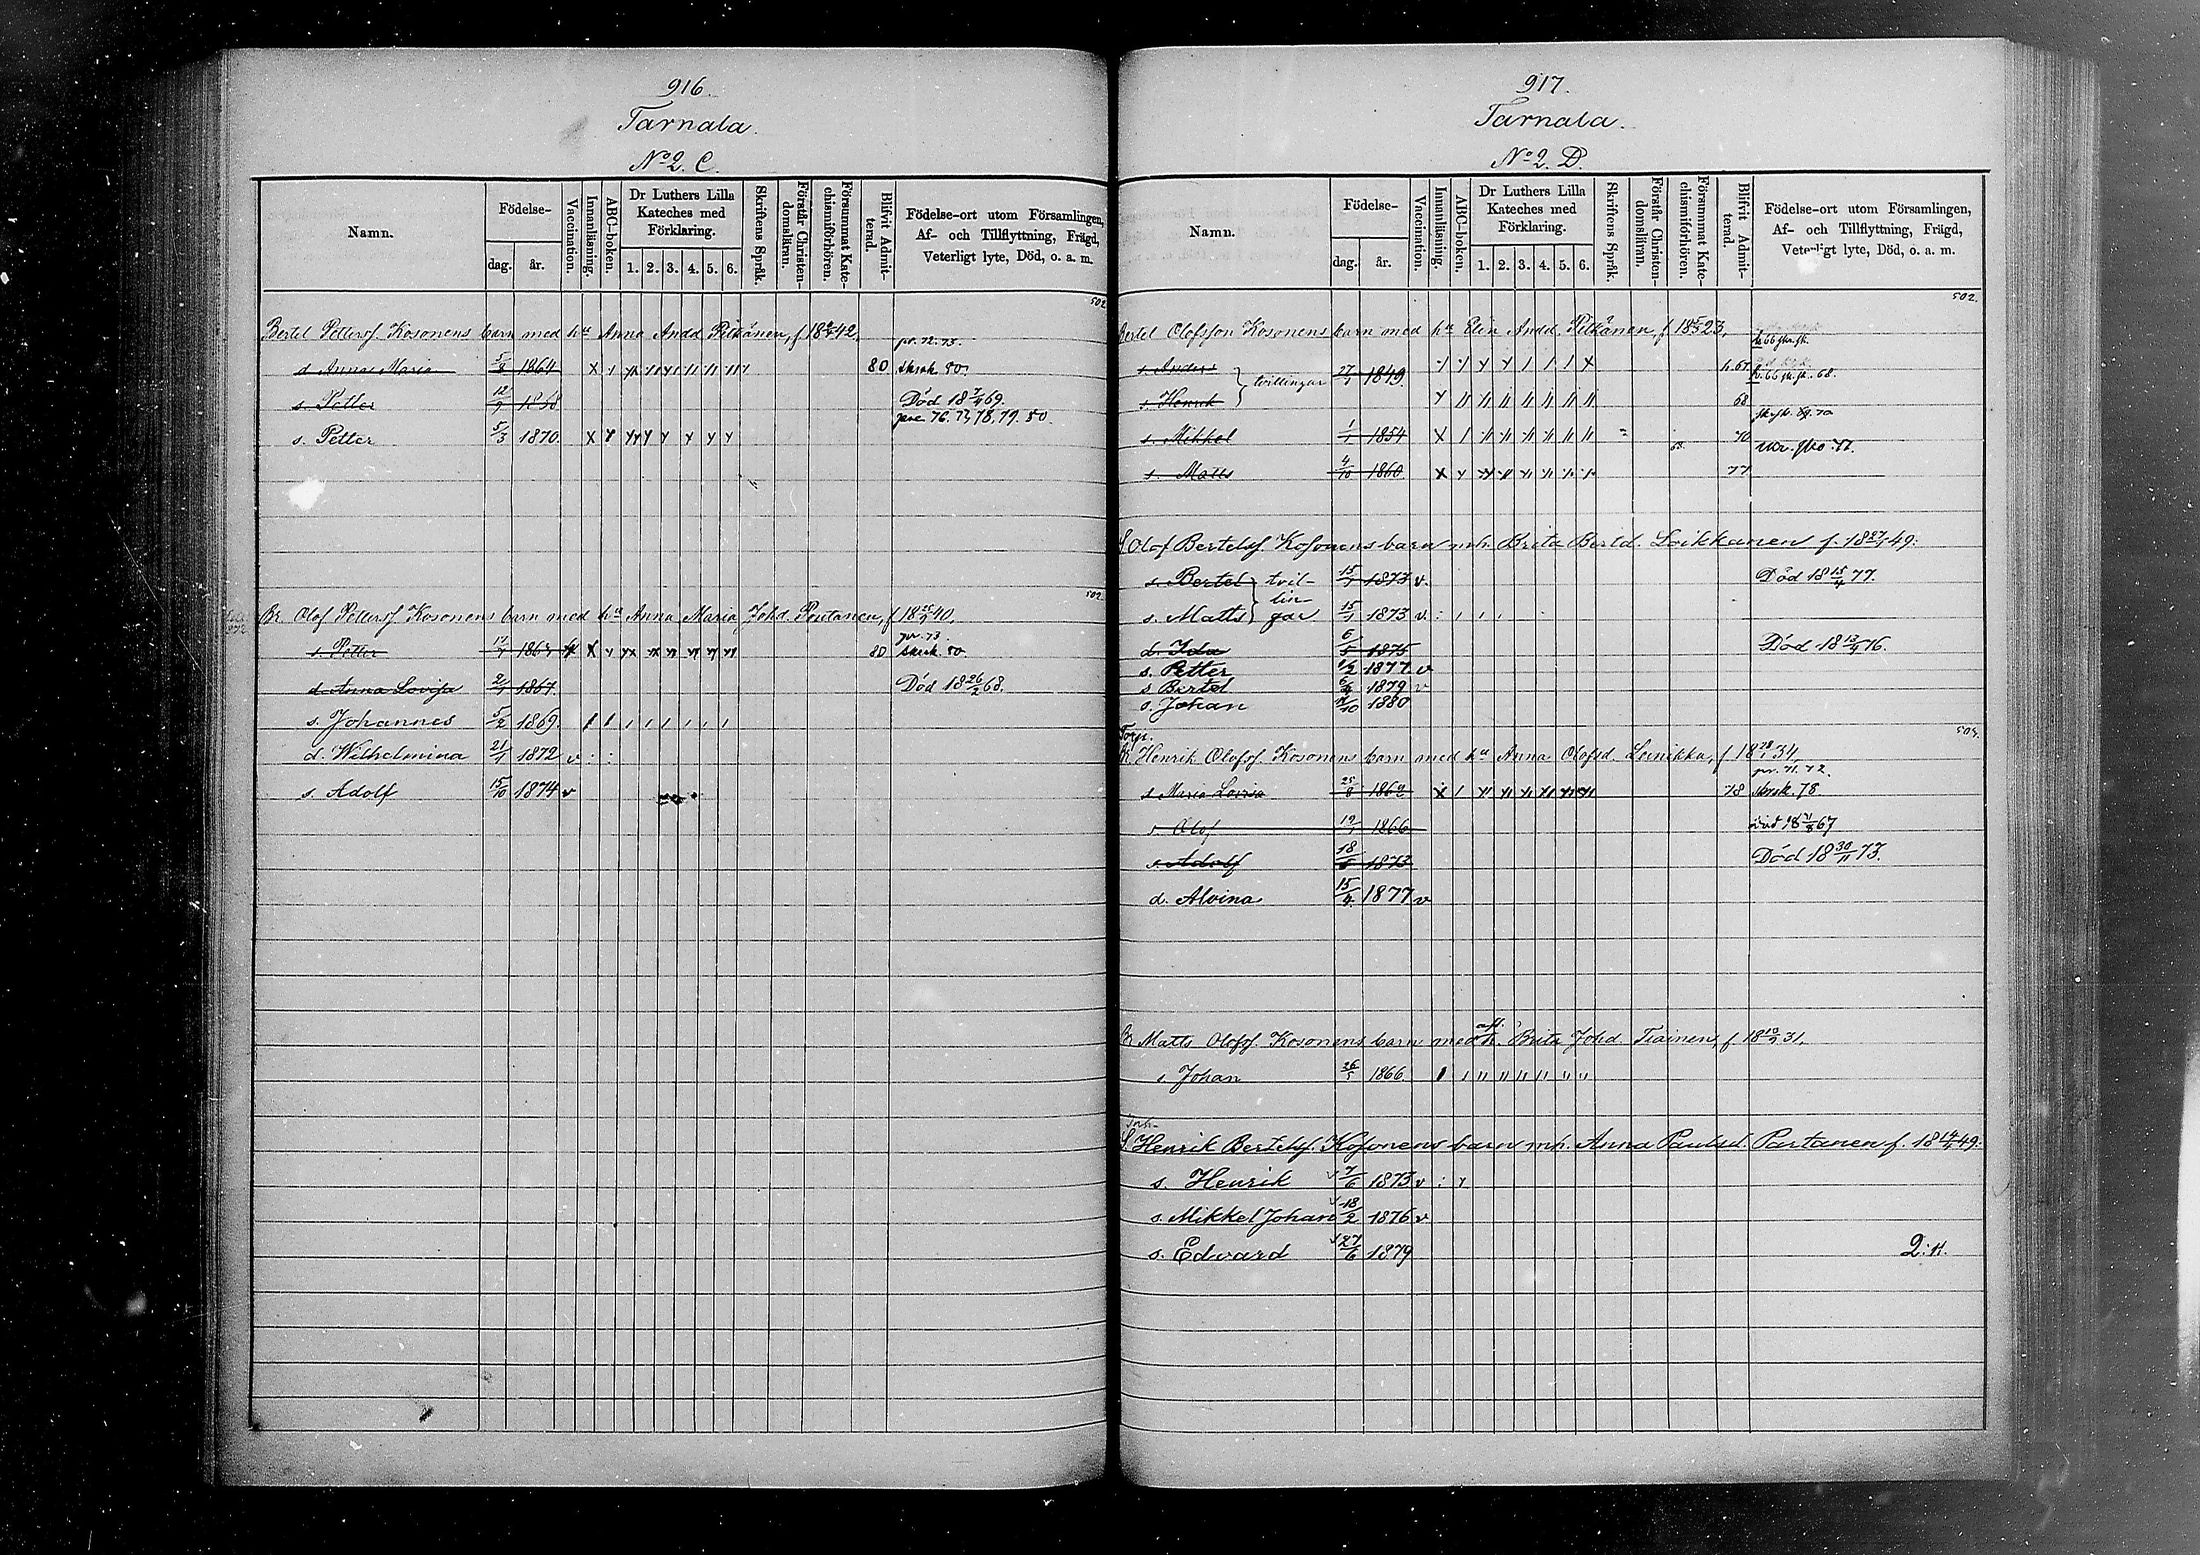 916.
Tarnala.
No 2. C.
Namn.
Födelse-
dag. år.
Vaccination.
Innanläsning.
ABC-boken.
Dr Luthers Lilla Kateches med Förklaring.
1. 2. 3. 4. 5. 6.
Skriftens Språk.
Förstår Christendomsläran.
Försummat Katechismiförhören.
Blifvit Admitterad.
Födelse-ort utom Församlingen,
Af- och Tillflyttning, Frägd,
Veterligt lyte, Död, o. a. m.
502
Bertel Pettersf Kosonens barn med hu Anna Andd Pitkänen, f.
d Anna Maria 5/8 1864 80
s. Petter 12/9 1868 Död 18 7/9 69.
s. Petter 5/3 1870.
502.
Br. Olof Pettersf Kosonens barn med hu Anna Maria Johd. f
s. Petter 80
d Anna Lovisa 1867 Död 18 26/2 68.
s. Johannes 5/2 1869.
d. Wilhelmina 21/1 1872 v
s. Adolf 15/10 1874 v
917.
Tarnala.
No 2. D.
Namn.
Födelse-
dag. år.
Vaccination.
Innanläsning.
ABC-boken.
Dr Luthers Lilla Kateches med Förklaring.
1. 2. 3. 4. 5. 6.
Skriftens Språk.
Förstår Christendomsläran.
Försummat Katechismiförhören.
Blifvit Admitterad.
Födelse-ort utom Församlingen,
Af- och Tillflyttning, Frägd,
Veterligt lyte, Död, o. a. m.
502.
Bertel Olofsson Kosonens barn med hu Elin Andd Pitkänen, f
s. Anders } tvillingar 27/1 1849.
s. Henrik 68
s. Mikkel 1/1 1854 70
s. Matts 4/10 1860 77
S Olof Bertelsf. Kosonens barn mh. Brita Bertd. Loikkanen f. 18 27/1 49.
s. Bertel } tvil- 15/1 1873 v. Död 18 15/4 77.
lin-
s. Matts } gar 15/1 1873 v.
d. Ida 6/5 1875 Död 18 13/4 76.
s. Petter 1877 v
s. Bertel 1879 v
s. Johan 1880
Torp.
505.
Br Henrik Olofsf. Kosonens barn med hu Anna Olofsd. f 18 28/1 34,
d Maria Lovisa 25/8 1862 78
s. Olof 19/1 1866
s. Adolf 18/6 1873 Död 18 30/11 73.
d. Alvina 15/4 1877 v
Br Matts Olofsf. Kosonens barn med afl. h. Brita Johd. Tiainen, f 18 10/9 31,
s Johan 26/5 1866
S Henrik Bertelsf. Kosonens barn mh. Anna Paulsd. Partanen f.
s. Henrik 7/6 1873 v
s. Mikkel Johan 18/2 1876 v
s. Edward 27/6 1879